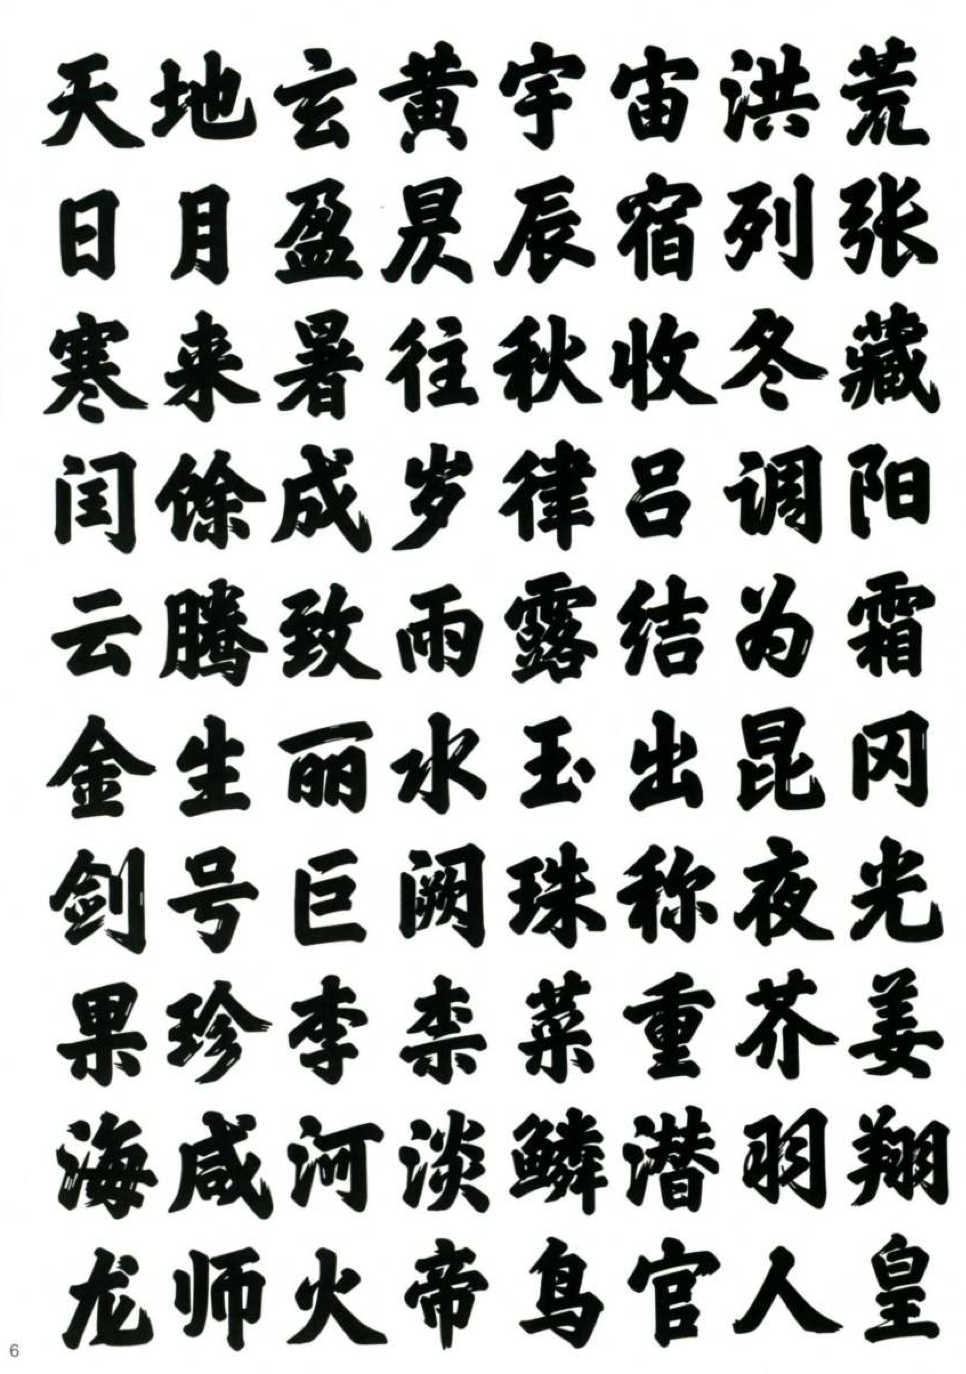 天地玄黄宇宙洪荒
日月盈昃辰宿列张
寒来暑往秋收冬藏
闰馀成岁律吕调阳
云腾致雨露结为霜
金生丽水玉出昆冈
剑号巨阙珠称夜光
果珍李柰菜重芥姜
海咸河淡鳞潜羽翔
龙师火帝鸟官人皇
6